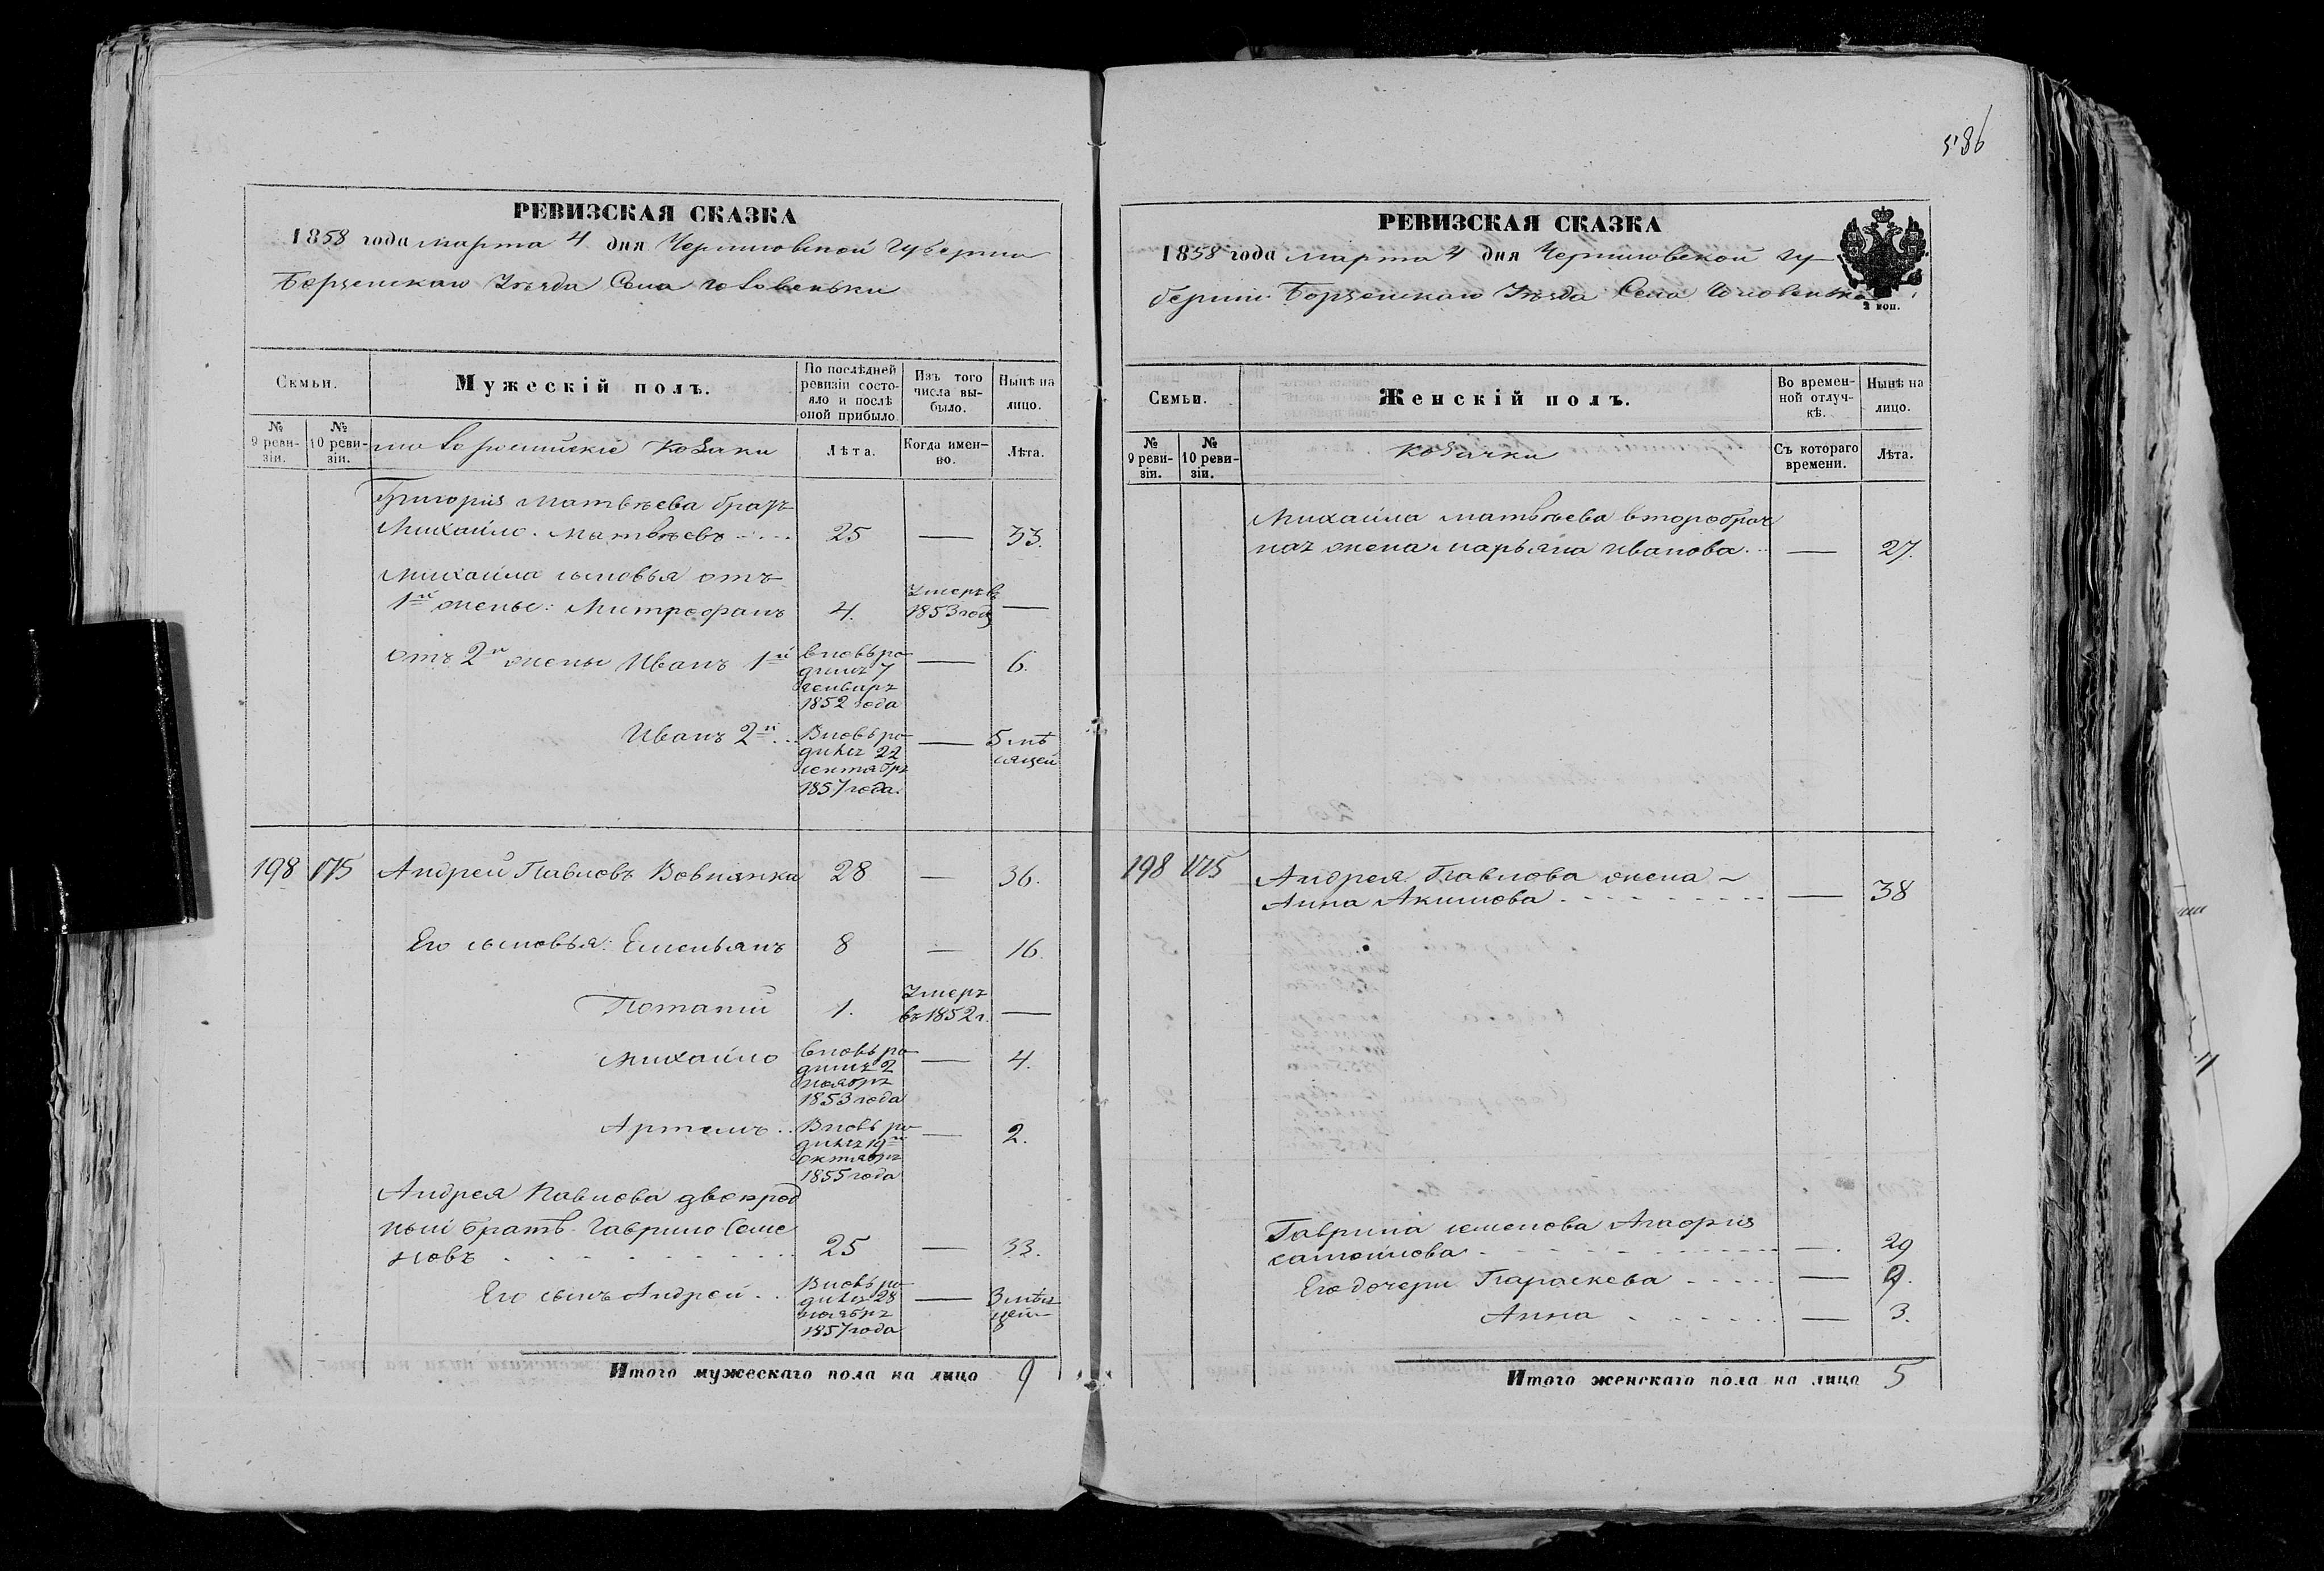 586
РЕВИЗСКАЯ СКАЗКА
1858 года марта 4 дня Черниговской Губернии
Борзенскаго Уѣзда Села
Семьи.
Мужескій полъ.
По послѣдней ревизіи состо-
яло и послѣ
оной прибыло.
Изъ того
числа вы-
было.
Нынѣ на
лицо.
№
9 реви-
зіи.
№
10 реви-
зіи.
малороссійскіе козаки
Лѣта.
Когда имен-
но.
Лѣта.
Григорія Матвѣева братъ
Михайло Матвѣевъ 25 — 33.
Михайла сыновья отъ
1й жены: Митрофанъ 4. умеръ въ
1853 году —
отъ 2й жены Иванъ 1й вновь ро-
дился 7
генваря
1852 года — 6.
Иванъ 2й Вновь ро-
дился 22
сентября
1857 года. — 5 мѣ
сяцей
198 175 Андрей Павловъ Вовнянка 28 — 36.
Его сыновья: Емельянъ 8 — 16.
Потапій 1. умеръ
въ 1852 г. —
Михайло вновь ро-
дился 2
ноября
1853 года — 4.
Артемъ Вновь ро-
дился 19го
октября
1855 года — 2.
Андрея Павлова двоюрод
ный братъ Гаврило Семе
новъ 25 — 33.
Его сынъ Андрей Вновь ро-
дился 28
ноября
1857 года — 3 мѣся
цей
Итого мужескаго пола на лицо 9
РЕВИЗСКАЯ СКАЗКА
1858 года марта 4 дня Черниговской гу-
берніи Борзенскаго Уѣзда Села
2 коп.
Семьи.
Женскій полъ.
Во времен-
ной отлуч-
кѣ.
Нынѣ на
лицо.
№
9 реви-
зіи.
№
10 реви-
зіи.
козачки
Съ котораго
времени.
Лѣта.
Михайла Матвѣева второбрач
ная жена Марьяна Иванова — 27.
198 175 Андрея Павлова жена
Анна Акимова — 38
Гаврила Семенова Агафія
Самойлова — 29
Его дочери Параскева — 9.
Анна — 3.
Итого женскаго пола на лицо 5